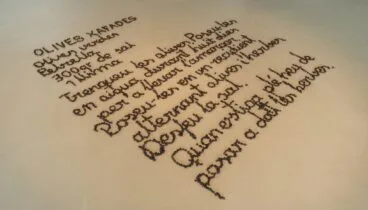 OLIVES XAFADES
Olives verdes
Pebrella
300gr de sal
Llima
Trenqueu les olives. Poseu-les
en aigua durant huit dies
per a llevar l'amargor
Poseu-les en un recipient
alternant olives i herbes
Desfeu la sal.
Quan estiga, pareu de
posar a dalt les herbes.